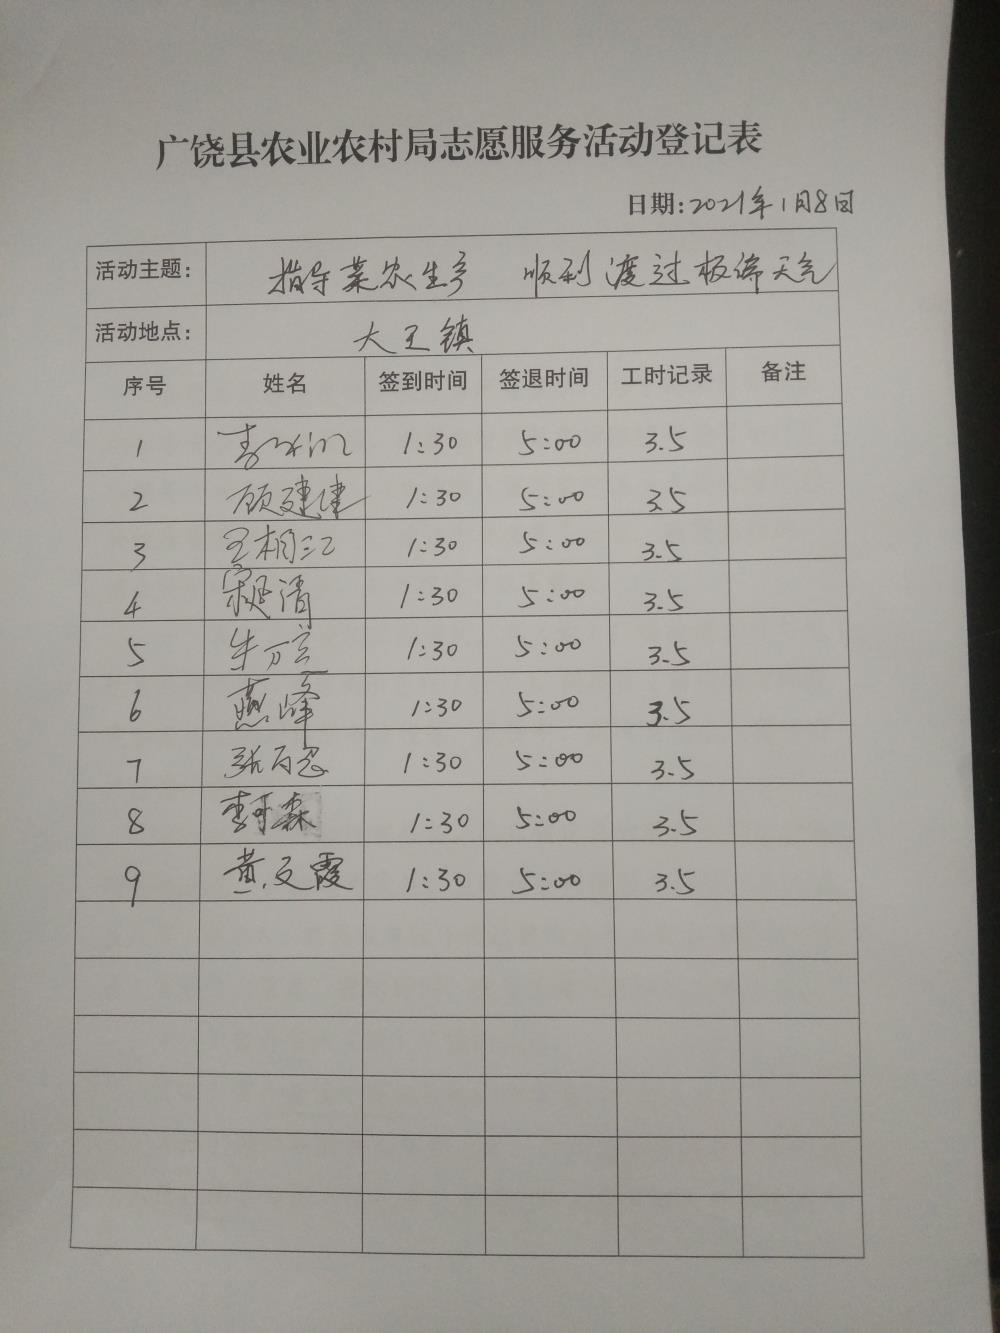 广饶县农业农村局志愿服务活动登记表
日期:2021年1月8日
活动主题: 指导菜农生产 顺利渡过极端天气
活动地点: 大王镇
序号 姓名 签到时间 签退时间 工时记录 备注
1 1:30 5:00 3.5
2 顾建津 1:30 5:00 3.5
3 王相江 1:30 5:00 3.5
4 清 1:30 5:00 3.5
5 朱万兰 1:30 5:00 3.5
6 燕峰 1:30 5:00 3.5
7 张百忍 1:30 5:00 3.5
8 李可森 1:30 5:00 3.5
9 黄文霞 1:30 5:00 3.5